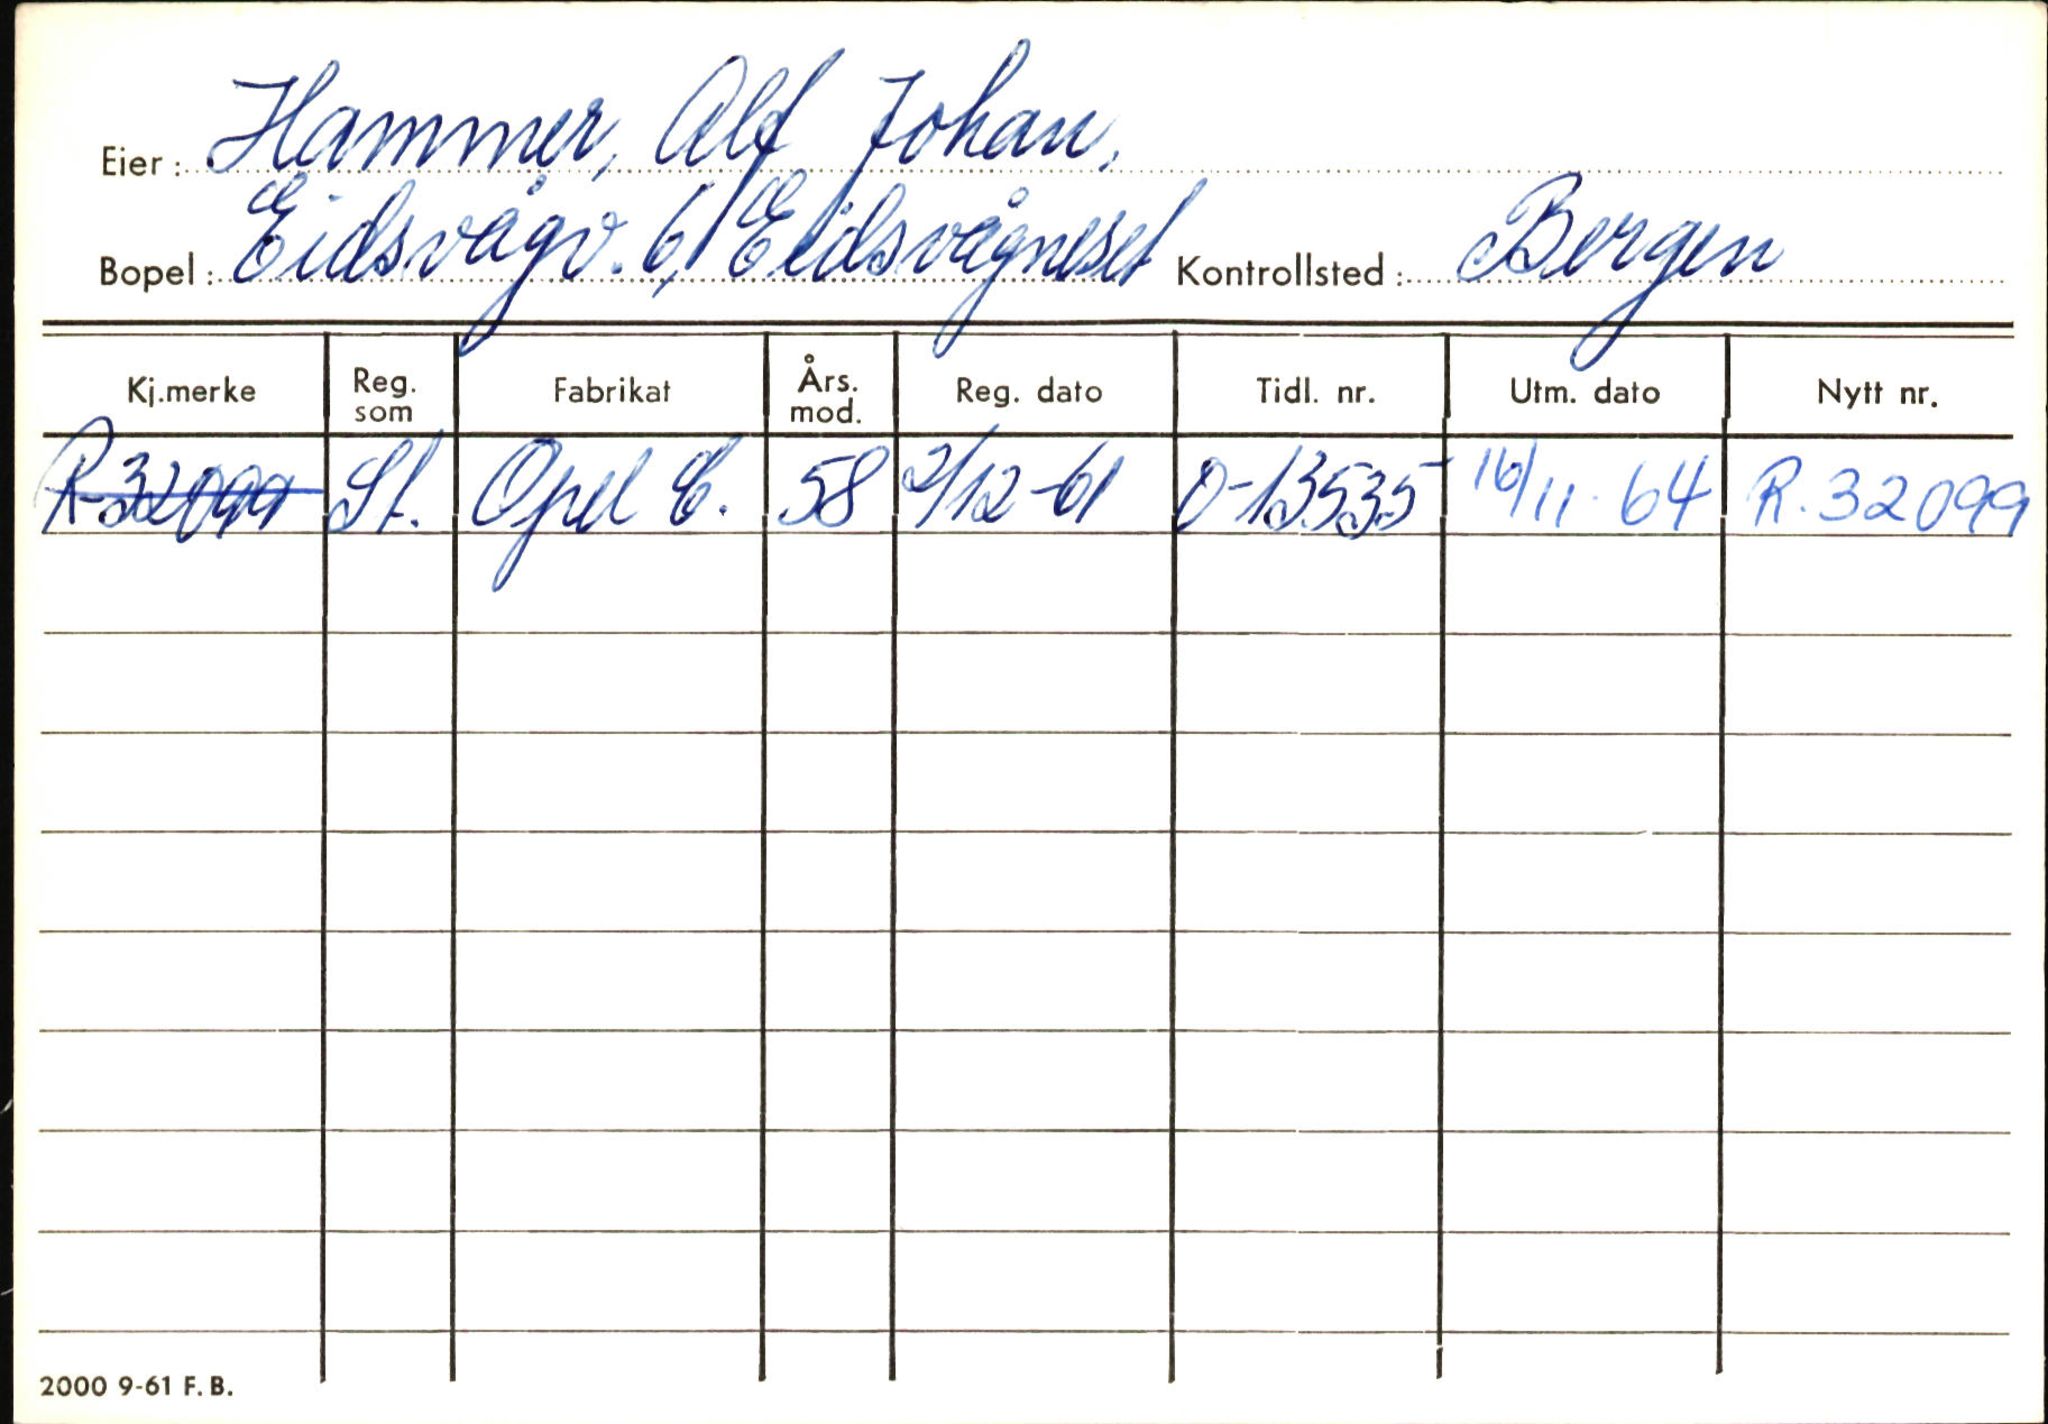 Eier: Hammer, Alf Johan,
Bopel: Eidsvågv. 6, Eidsvågneset Kontrollsted: Bergen
Kj.merke Reg. som Fabrikat Års. mod. Reg. dato Tidl. nr. Utm. dato Nytt nr.
R-32099 St. Opel C. 58 2/12-61 O-13535 16/11-64 R.32099
2000 9-61 F.B.